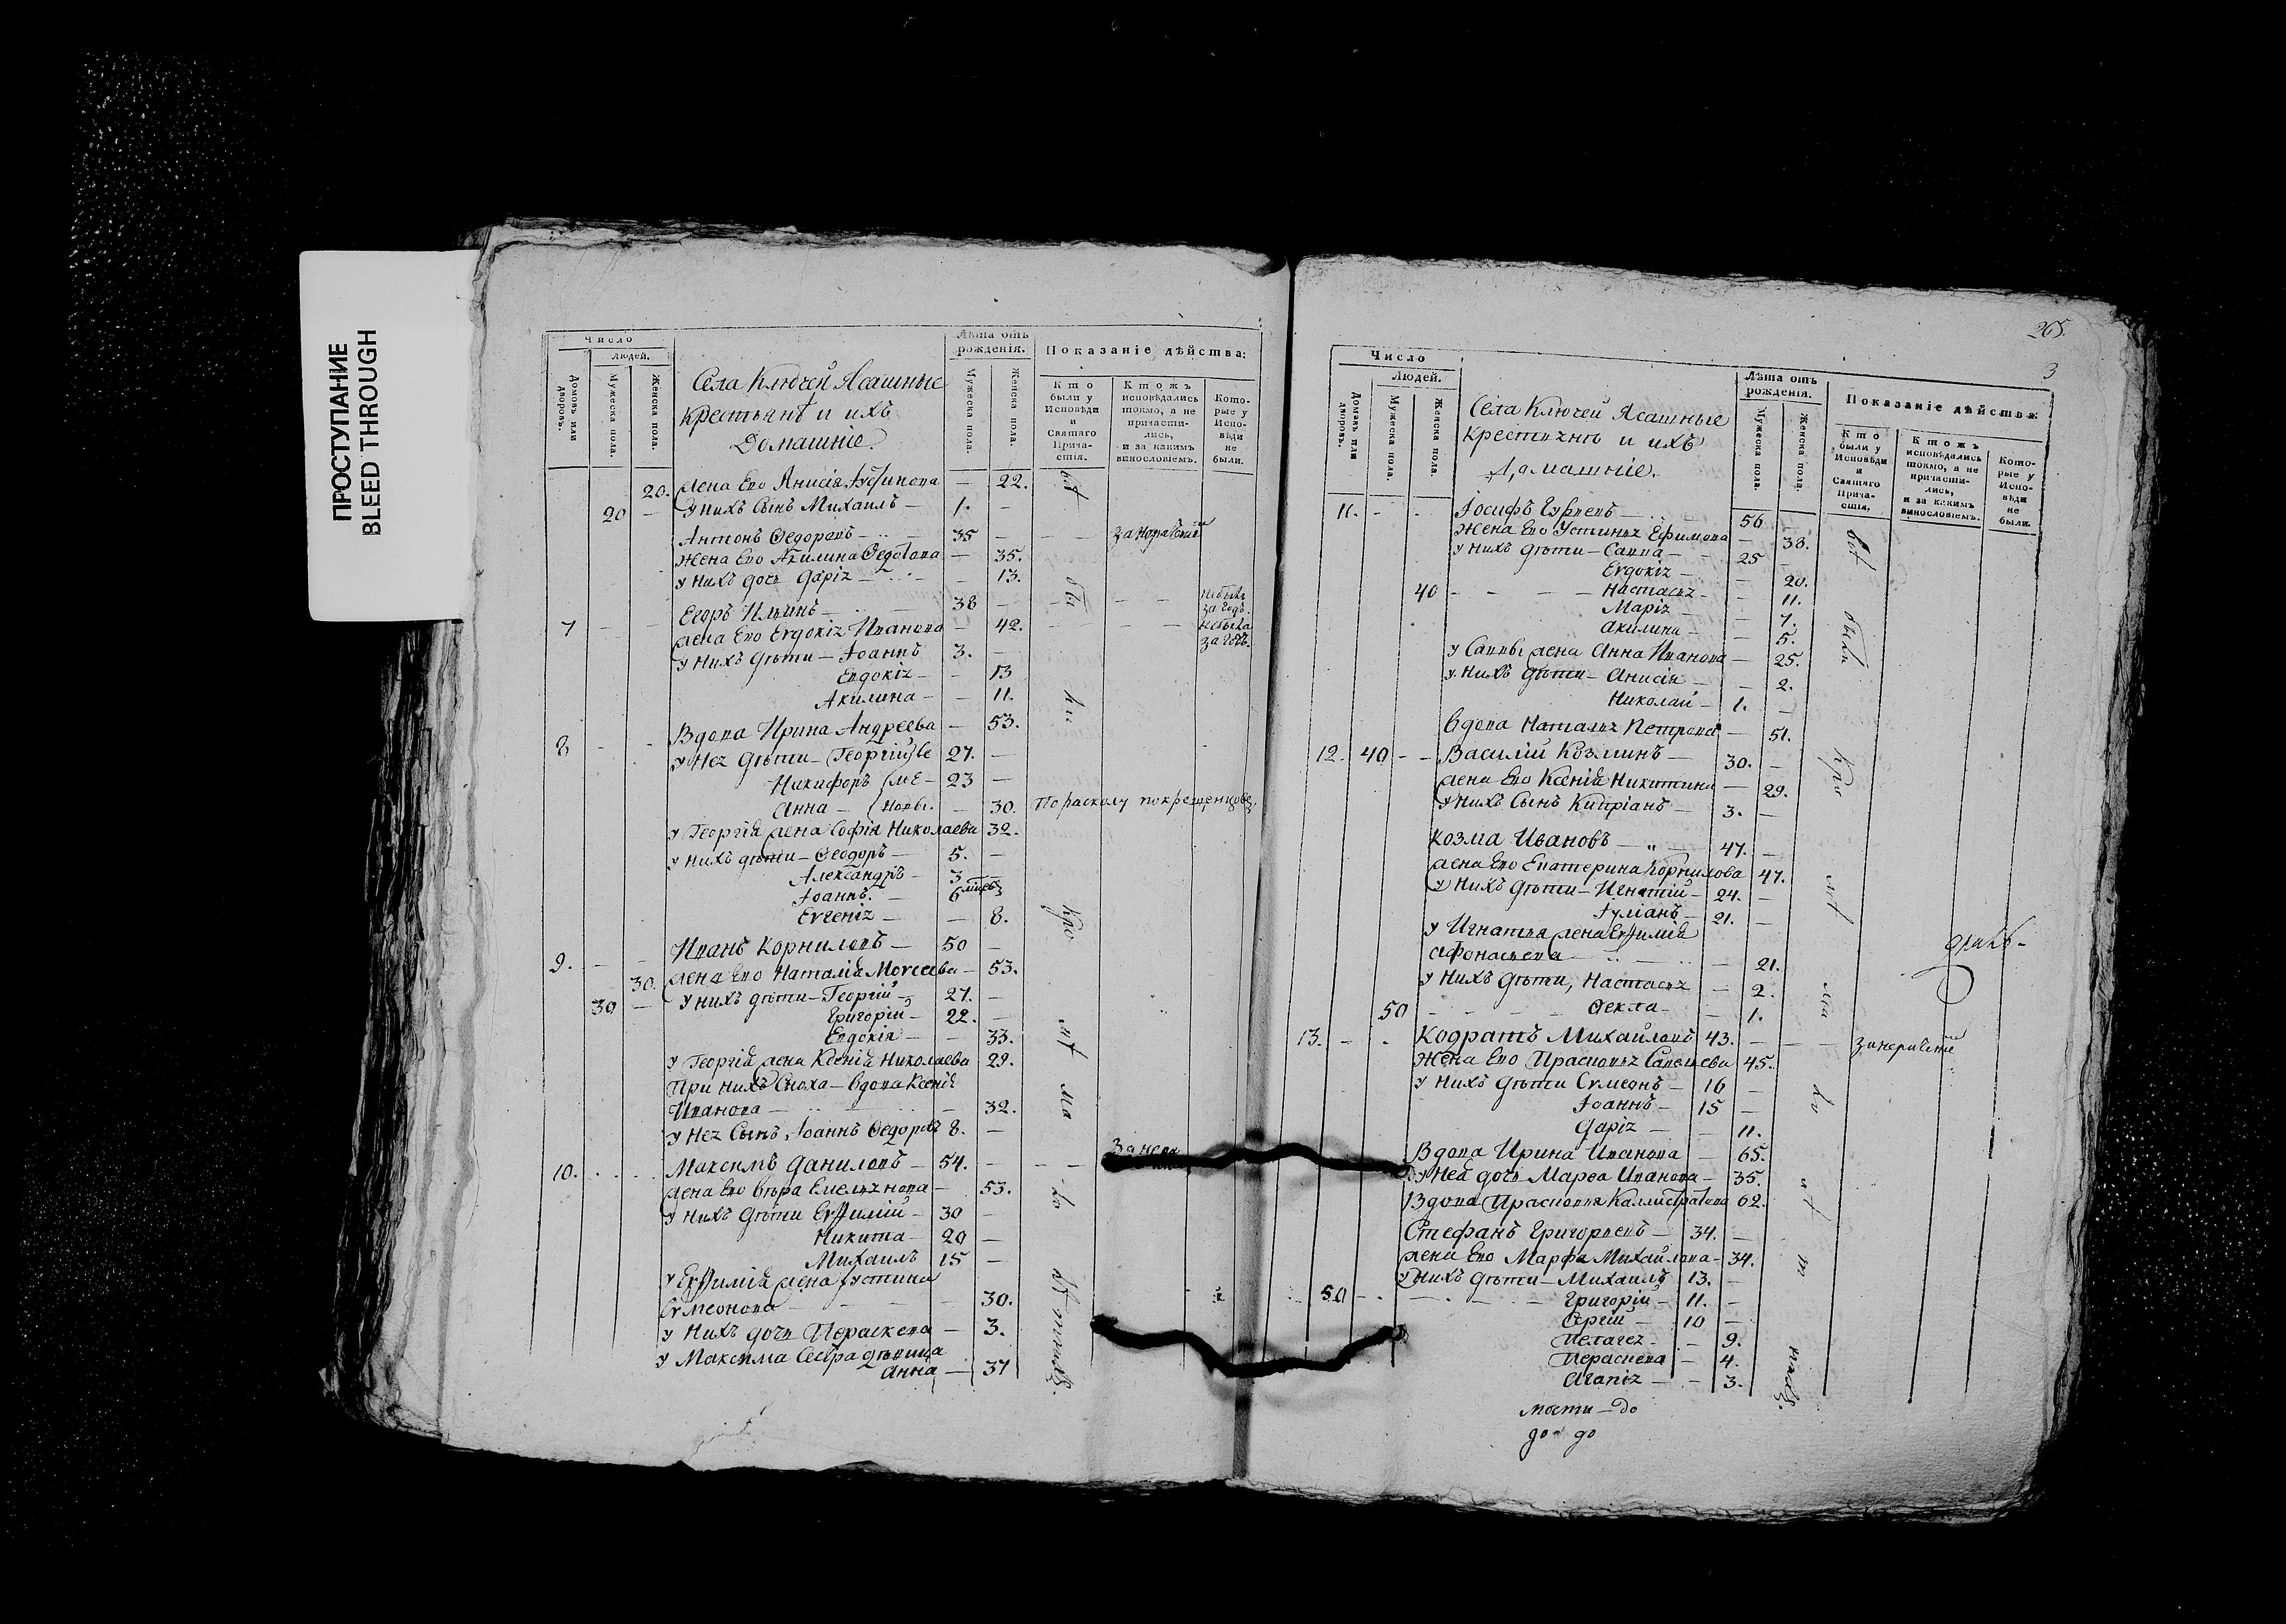 ПРОСТУПАНИЕ
BLEED THROUGH
Число
Людей.
Домовъ или дворовъ.
Мужеска пола.
Женска пола.
Села Ключей Ясашные
крестьянѣ и ихъ
Домашніе.
Лѣта отъ
рожденія.
Мужеска пола.
Женска пола.
Показаніе дѣйства:
Кто были у Исповѣди и Святаго Причастія.
Ктожъ исповѣдались токмо, а не причастились, и за какимъ винословіемъ.
Которые у Исповѣди не были.
20. жена Его Анисія — 22.
20 — У нихъ Сынъ Михаилъ — 1. —
Антонъ Ѳедоровъ — 35 —
Жена Его Акилина Ѳедотова — 35.
у нихъ дочь Дарія — 13.
7 — — Егоръ Ильинъ — 38 — — — — небылъ за годъ.
жена Его Еvдокія Иванова — 42. — — — небыла за годъ.
у нихъ дѣти — Іоаннъ 3. —
Евдокія — — 13
Акилина — — 11.
8 - - Вдова Ирина Андреева — 53.
у Нея дѣти — Георгій 27. —
Никифоръ 23 —
Анна — — 30. По расколу
у Георгія жена Софія Николаева 32.
у нихъ дѣти — Ѳеодоръ — 5. —
Александръ — 3 —
Іоаннъ. — 6 мцовъ
Еvгенія — — 8.
9. — - Иванъ Корниловъ — 50 —
30. жена Его Наталія Моvсеева — 53.
30 — У нихъ дѣти — Георгій — 27. —
Григорій — 22. —
Евдокія — — 33.
у Георгія жена Ксенія Николаева 29.
При нихъ Сноха — Вдова Ксенія
Иванова — — 32.
у Нея Сынъ Іоаннъ Ѳедоровъ 8. —
10. Максимъ Даниловъ — 54. —
жена Его Вѣра Емельянова — 53.
у нихъ дѣти Еvѳимій — 30 —
Никита — 20 —
Михаилъ 15 —
у Еvѳимія жена Іустина
Сvмеонова — — 30.
у Нихъ дочь Параскева — 3.
у Максима Сестра дѣвица
Анна — 37
265.
3
Число
Людей.
Домовъ или дворовъ.
Мужеска пола.
Женска пола.
Села Ключей Ясашные
крестьянѣ и ихъ
Домашніе.
Лѣта отъ
рожденія.
Мужеска пола.
Женска пола.
Показаніе дѣйства:
Кто были у Исповѣди и Святаго Причастія.
Ктожъ исповѣдались токмо, а не причастились, и за какимъ винословіемъ.
Которые у Исповѣди не были.
11. - - Іосифъ — 56 —
Жена Его Устинья Ефимова — 38.
у нихъ дѣти — Савва — 25 —
Еvдокія — — 20.
40 — — — Настасья — — 11.
Марія — — 7.
Акилина — — 5.
у Саввы жена Анна Иванова — 25.
у нихъ дѣти — Анисія — — 2.
Николай — 1. —
Вдова Наталья Петрова — 51.
12. 40 - - Василій Козминъ — 30. —
жена Его Ксенія Никитина — 29.
у нихъ Сынъ Кипріанъ — 3. —
Козма Ивановъ — 47. —
жена Его Екатерина Корнилова 47.
у нихъ дѣти — Игнатій — 24. —
Іуліанъ — 21. —
у Игнатья жена Еvѳимія
Афонасьева — — 21.
у Нихъ дѣти, Настасья — 2.
50 — — — Ѳекла — — 1.
13. - - Кодратъ Михайловъ 43. — — —
Жена Его Прасковья Савельева 45.
у Нихъ дѣти Сvмеонъ — 16 —
Іоаннъ — 15 —
Дарія — — 11.
Вдова Ирина Иванова — 65.
у Ней дочь Марѳа Иванова — 35.
Вдова Прасковья Каллистратова 62.
Стефанъ Григорьевъ — 34. —
жена Его Марфа Михайлова — 34.
у нихъ дѣти — Михаилъ 13. —
50 — — — Григорій — 11. —
Сергій — 10 —
Пелагея — — 9.
Параскева — 4.
Агапія — — 3.